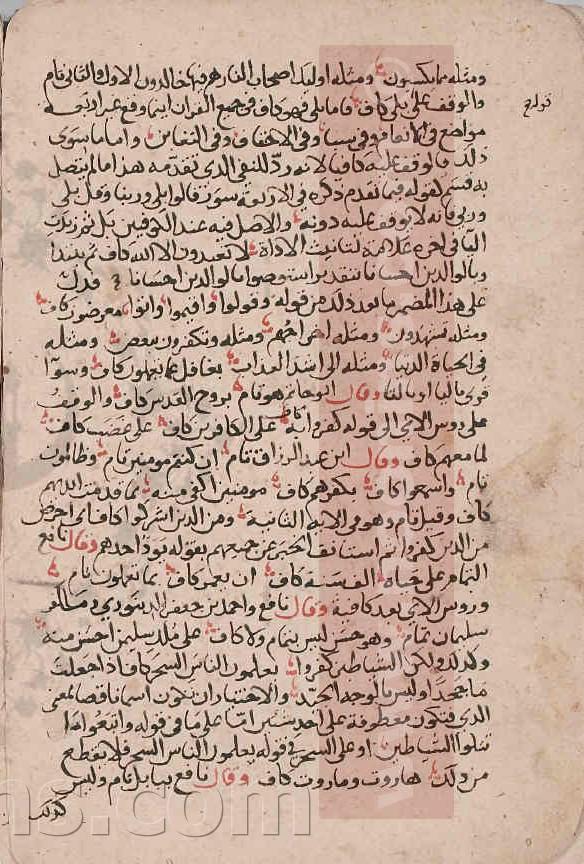 ومثله مما يكسبون ومثله اوليك اصحاب النار هم فيها خالدون الاول والثاني تام
والوقف على بلى كاف فاما بلى فهو كاف في جميع القران اينما وقع غير اربعة
قوله
مواضع في الانعام وفي سبا وفي الاحقاف وفي التغابن واما ما سوى
ذلك فالوقف عليه كاف لانه رد للنفي الذي تقدمه هذا ما لم يتصل
به قسم كقوله فيما تقدم ذكره في الاربعة سور قالوا بلى وربنا وقل بلى
وربي فانه لا يوقف عليه دونه والاصل فيه عند الكوفيين بل ثم زيدت
اليا في اخره علامة لتانيث الاداة لا تعبدون الا الله كاف ثم يبتدا
وبالوالدين احسانا بتقدير استوصوا بالوالدين احسانا ودل
على هذا المضمر ما بعد ذلك من قوله وقولوا واقيموا واتوا معرضون كاف
ومثله تشهدون ومثله اخراجهم ومثله وتكفرون ببعض ومثله
في الحياة الدنيا ومثله الى اشد العذاب بغافل عما يعملون كاف وسوآ
قرى باليا او بالتا وقال ابو حاتم هو تام بروح القدس كاف والوقف
على روس الاي الى قوله كفروا به على الكافرين كاف على غضب كاف
لما معهم كاف وقال ابن عبد الرزاق تام ان كنتم مومنين تام وظالمون
تام واسمعوا كاف بكفرهم كاف مومنين اكفى منه بما قدمت ايديهم
كاف وقيل تام وهو في الاية الثانية ومن الذين اشركوا كاف اي احرص
من الذين كفروا ثم استانف الخبر عن جميعهم بقوله يود احدهم وقال نافع
التمام على حياة الف سنة كاف ان يعمر كاف بما يعملون تام
وروس الاي بعد كافية وقال نافع واحمد بن جعفر الدينوري
سليمان تمام وهو حسن ليس بتمام ولا كاف على ملك سليمن احسن منه
وكذلك ولكن الشياطين كفروا يعلمون الناس السحر كاف اذا جعلت
ما جحدا وليس بالوجه الجيد والاختيار ان تكون اسما ناقصا بمعنى
الذي فتكون معطوفة على احد شيين اما على ما في قوله واتبعوا ما
تتلوا الشياطين او على السحر في قوله يعلمون الناس السحر فلا يقطع
من ذلك هاروت وماروت كاف وقال نافع ببابل تام وليس
كذلك